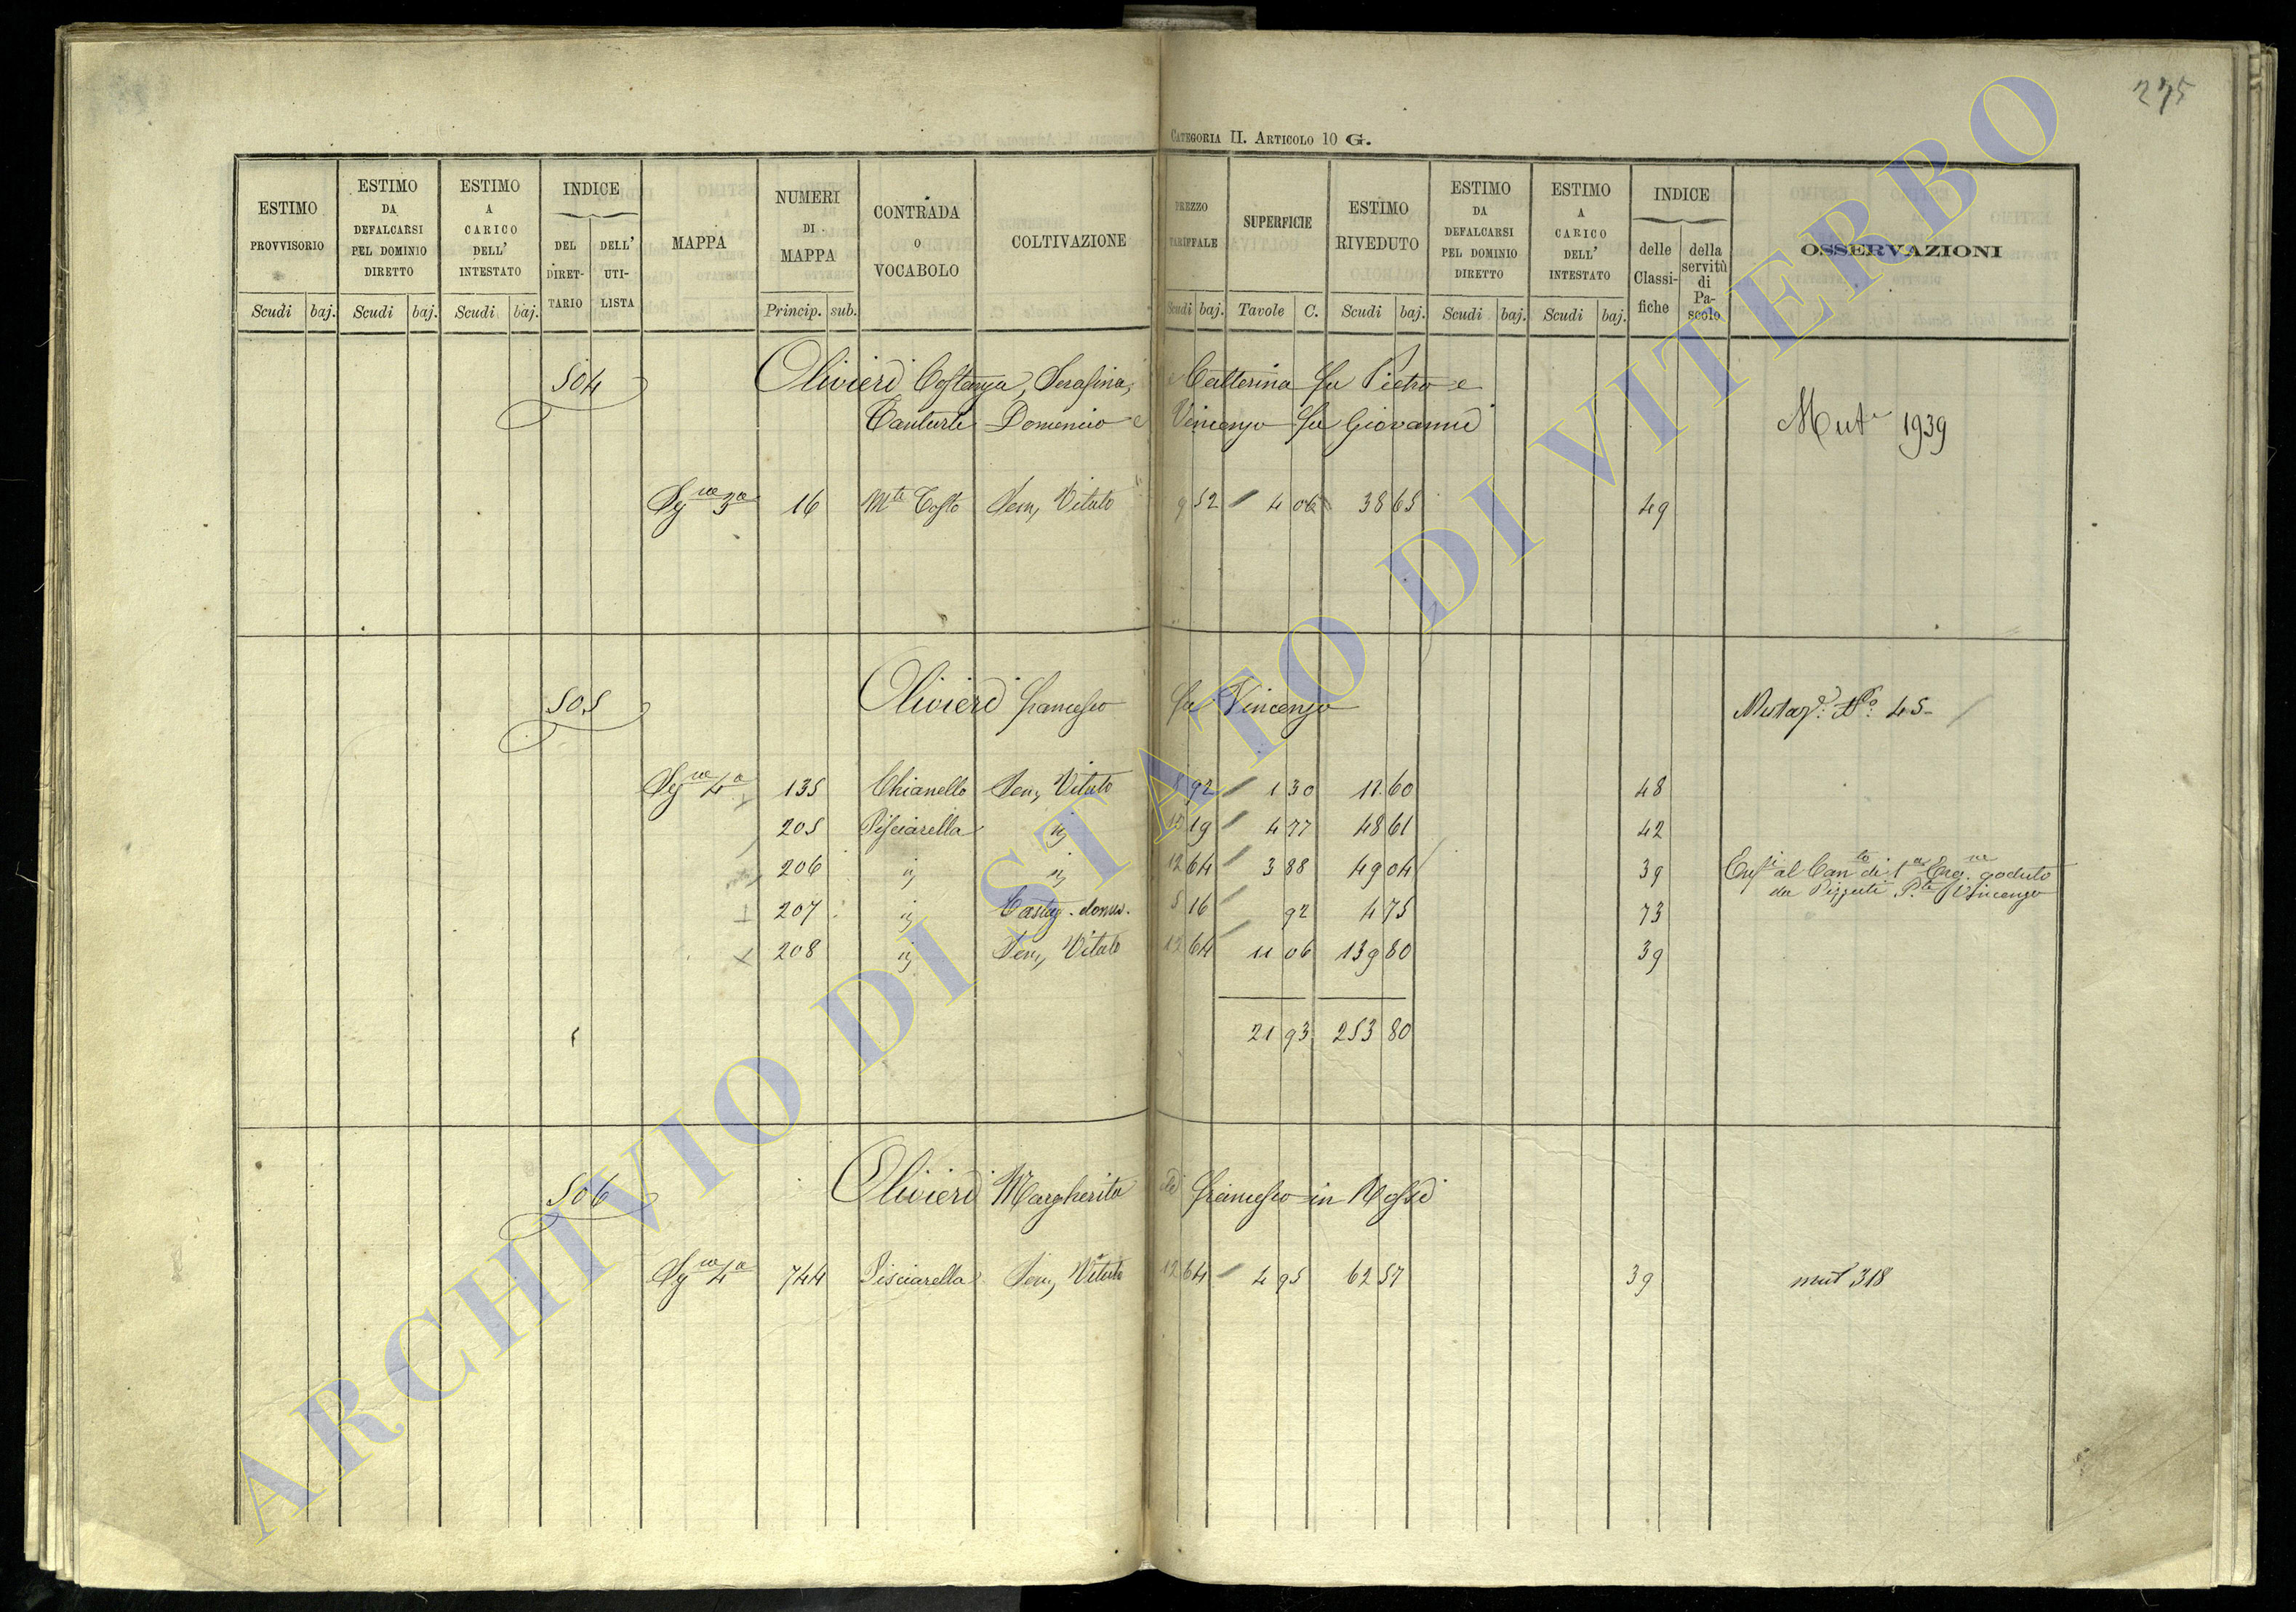 275
CATEGORIA II. ARTICOLO 10 G.
ESTIMO PROVVISORIO
ESTIMO DA DEFALCARSI PEL DOMINIO DIRETTO
ESTIMO A CARICO DELL' INTESTATO
INDICE
DEL DIRETTARIO
DELL' UTILISTA
MAPPA
NUMERI DI MAPPA
CONTRADA O VOCABOLO
COLTIVAZIONE
PREZZO TARIFFALE
SUPERFICIE
ESTIMO RIVEDUTO
ESTIMO DA DEFALCARSI PEL DOMINIO DIRETTO
ESTIMO A CARICO DELL' INTESTATO
INDICE
delle Classifiche
della servitù di Pascolo
OSSERVAZIONI
Scudi baj. Scudi baj. Scudi baj. Princip. sub. Scudi baj. Tavole C. Scudi baj. Scudi baj. Scudi baj.
504 Olivieri Costanza, Serafina, e Catterina fu Pietro e
Domenico e Vincenzo fu Giovanni
Mut 1939
3a 16 Mte Tosto Sem, Vitato 9 52 4 06 38 65 49
505 Olivieri Francesco fu Vincenzo
45
4a 135 Chianello Sem, Vitato 8 92 1 30 11.60 48
205 Pisciarella 10 19 4 77 48 61 42
206 12 64 3 88 49 04 39 goduto
207 Castag. domes. 5 16 92 4 75 73 Vincenzo
208 Sem, Vitato 12 64 11 06 139 80 39
21 93 253 80
506 Olivieri Margherita di Francesco in Rossi
4a 744 Pisciarella Sem, Vitato 12 64 4 95 62 57 39 mut 318
ARCHIVIO DI STATO DI VITERBO